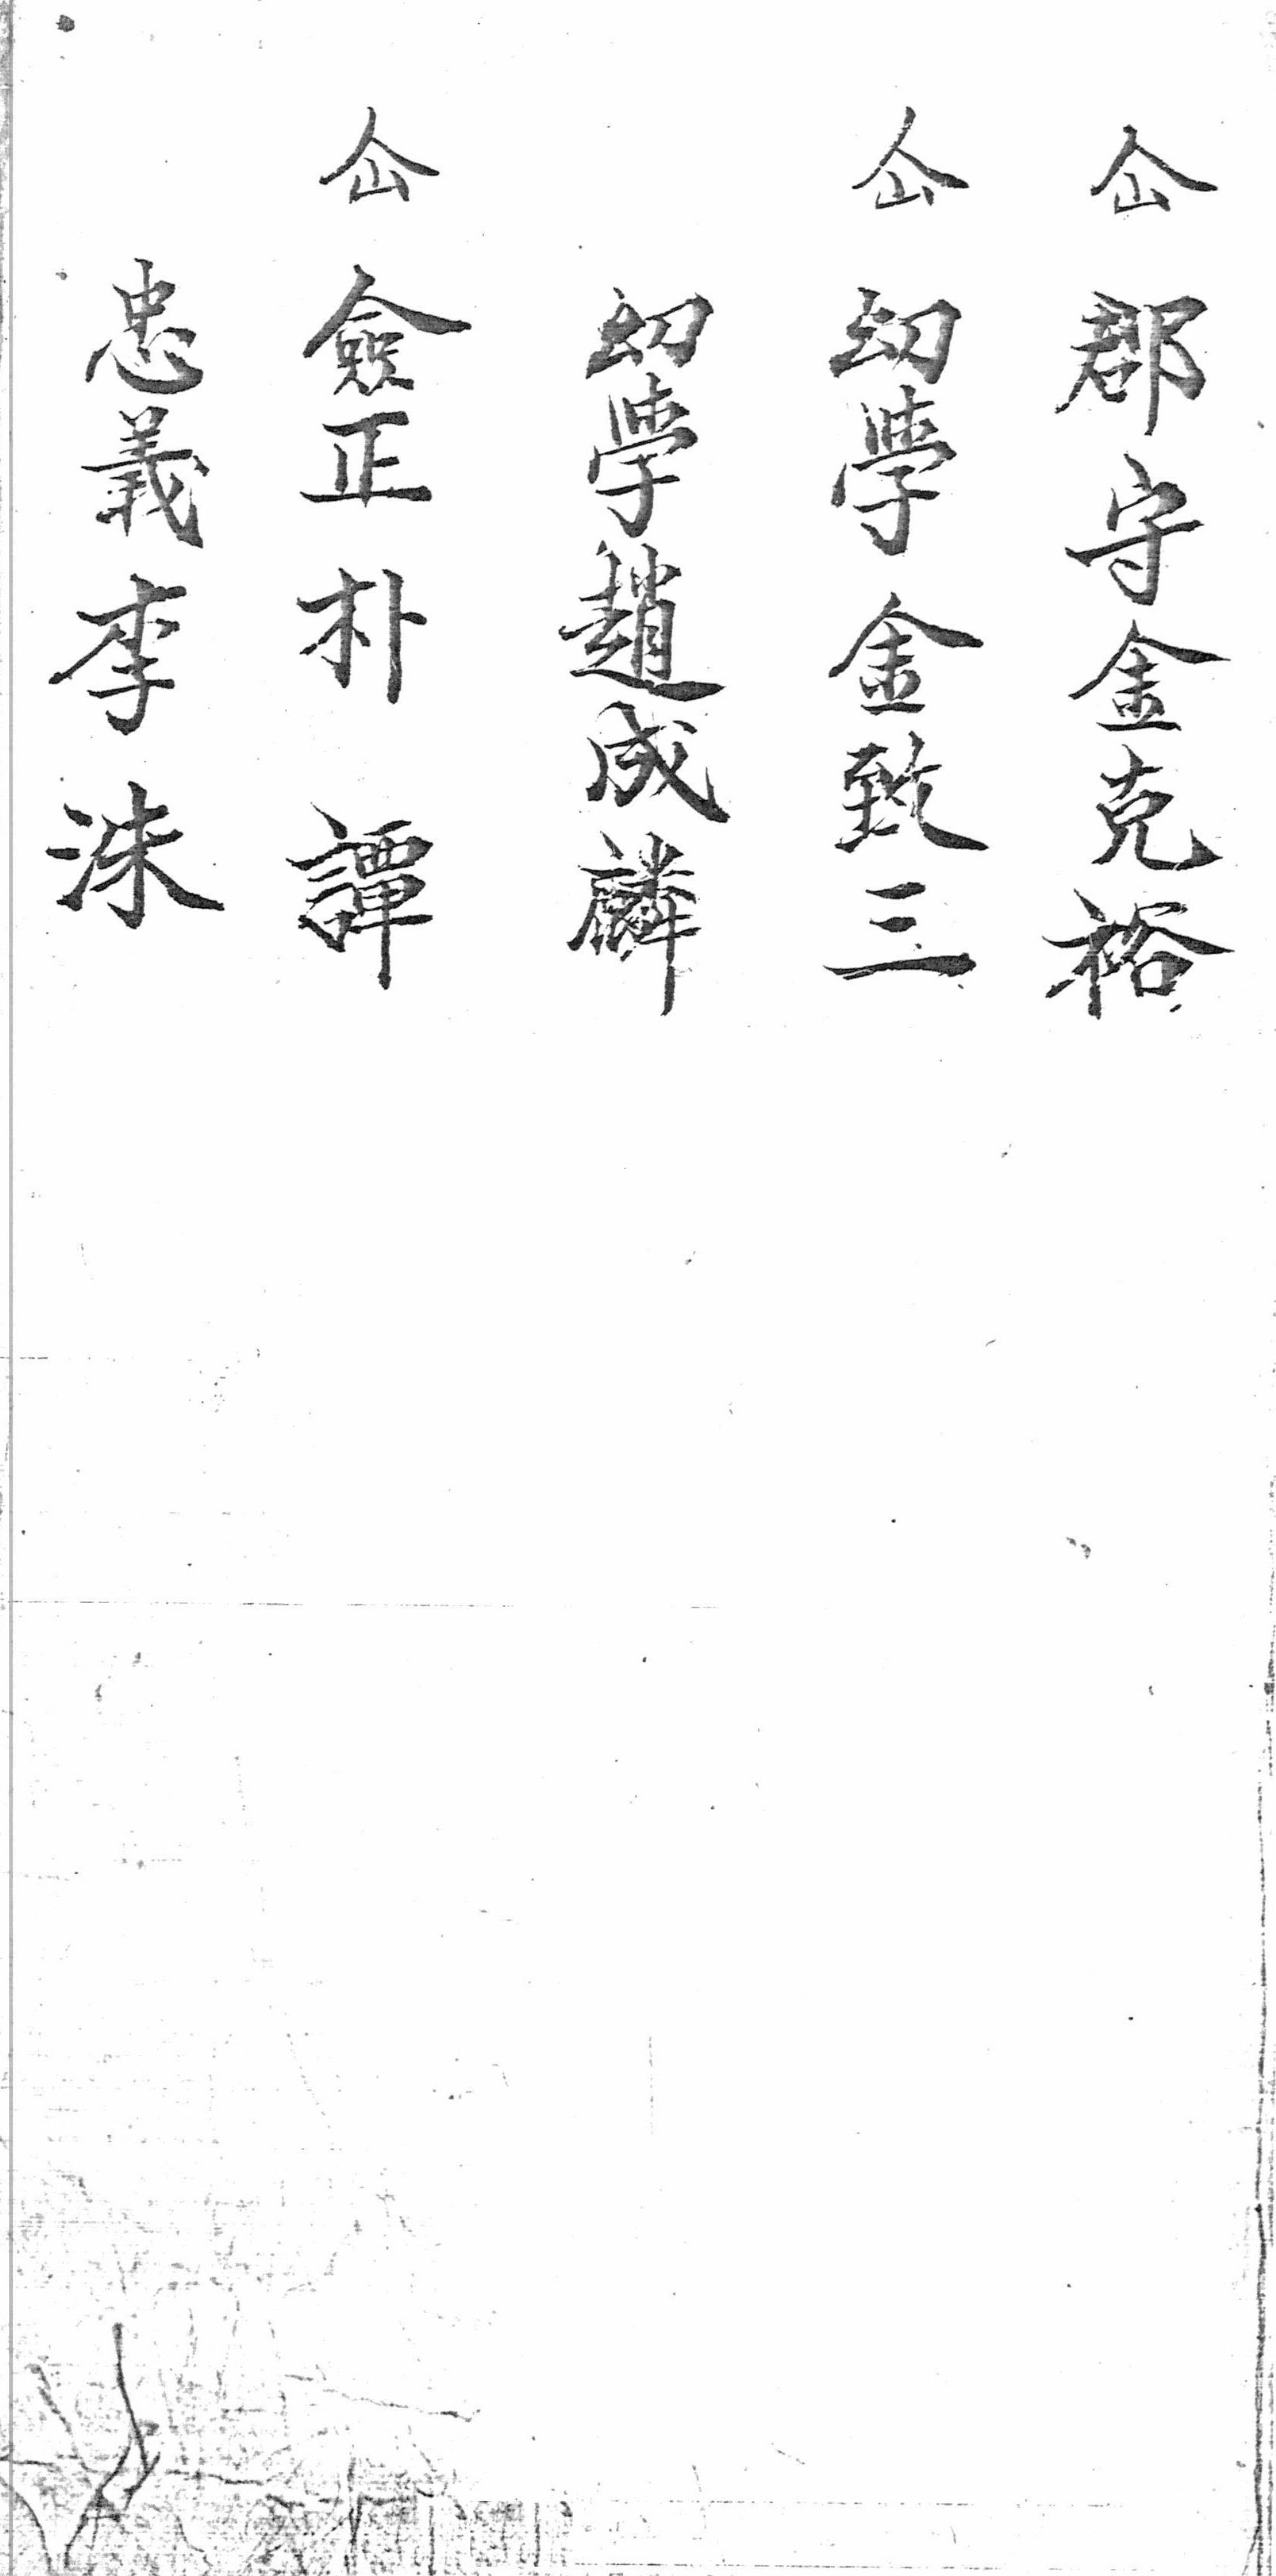 仚 郡守金克裕
仚 幼學金致三
幼學趙成麟
仚 僉正朴譚
忠義李洙